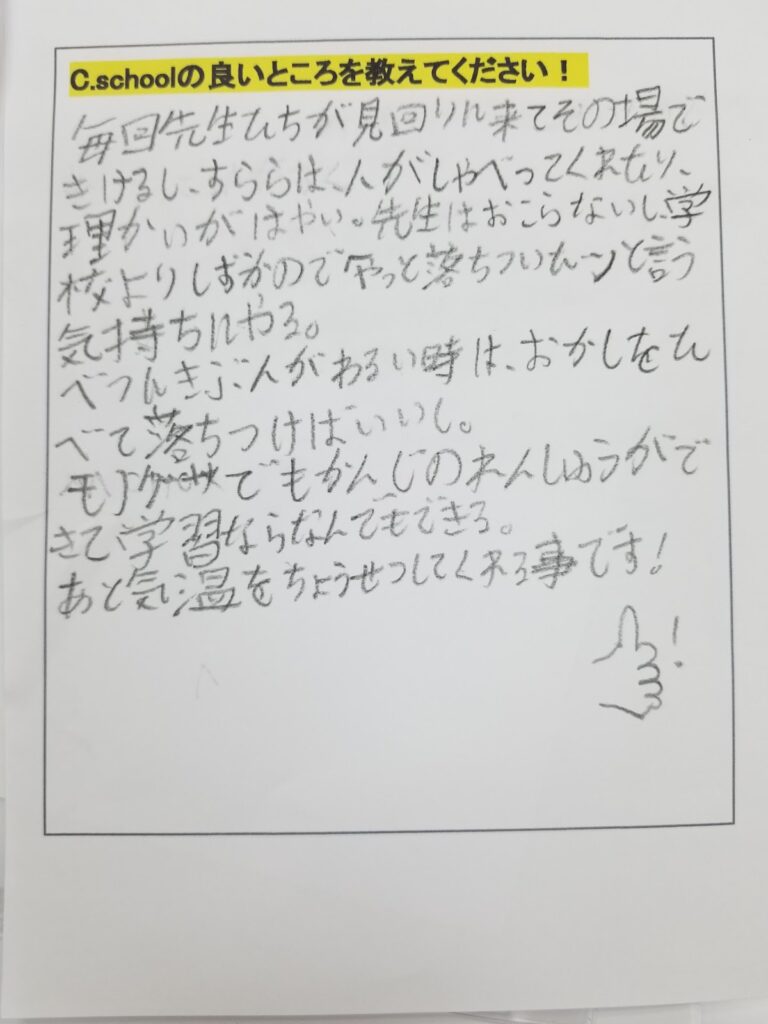 C.schoolの良いところを教えてください！
毎回先生たちが見回りに来てその場で
きけるし、すららは、人がしゃべってくれたり、
理かいがはやい。先生はおこらないし、学
校よりしずかのでやっと落ちついたーンと言う
気持ちにやる。
べつにきぶんがわるい時は、おかしをた
べて落ちつけばいいし。
モノグサでもかんじのれんしゅうがで
きて学習ならなんでもできる。
あと気温をちょうせつしてくれる事です！
！